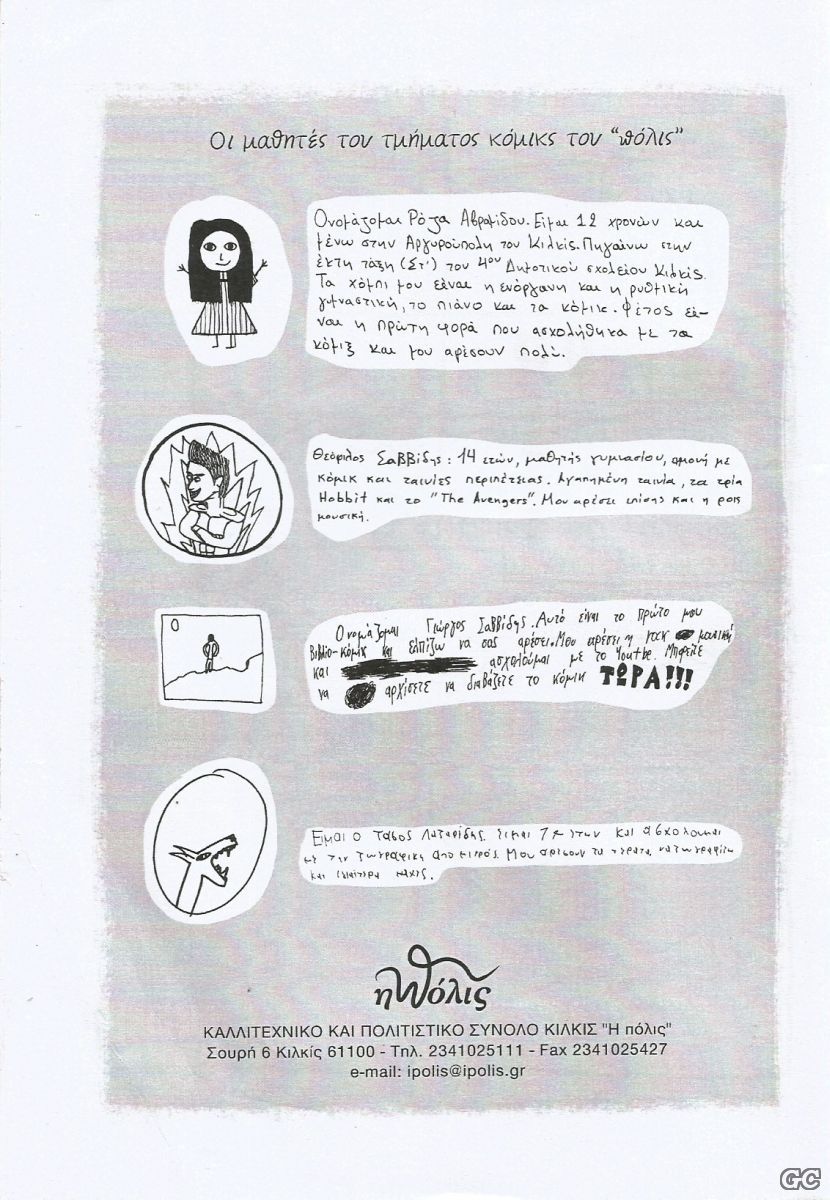 Οι μαθητές του τμήματος κόμικς του "πόλις"
Ονομάζομαι Ρόζα Αβραμίδου. Είμαι 12 χρονών και
μένω στην Αργυρούπολη του Κιλκίς. Πηγαίνω στην
έκτη τάξη (Στ') του 4ου Δημοτικού σχολείου Κιλκίς.
Τα χόμπι μου είναι η ενόργανη και η ρυθμική
γυμναστική, το πιάνο και τα κόμικ. Φέτος εί-
ναι η πρώτη φορά που ασχολήθηκα με τα
κόμιξ και μου αρέσουν πολύ.
Θεόφιλος Σαββίδης: 14 ετών, μαθητής γυμνασίου, αμονή με
κόμικ και ταινίες περιπέτειας. Αγαπημένη ταινία, τα τρία
Hobbit και το "The Avengers". Μου αρέσει επίσης και η ροκ
μουσική.
Ονομάζομαι Γιώργος Σαββίδης. Αυτό είναι το πρώτο μου
βιβλιο-κόμικ και ελπίζω να σας αρέσει. Μου αρέσει η ροκ μουσική
και ασχολούμαι με το Youtbe. Μπορείτε
να αρχίσετε να διαβάζετε το κόμικ ΤΩΡΑ!!!
Ειμαι ο Τασος Λαζαρίδης. Ειμαι 7 ετων και ασχολουμαι
με την ζωγραφικη απο μικρός. Μου αρεσουν τα τερατα, να ζωγραφίζω
και ιδιαίτερα
η πόλις
ΚΑΛΛΙΤΕΧΝΙΚΟ ΚΑΙ ΠΟΛΙΤΙΣΤΙΚΟ ΣΥΝΟΛΟ ΚΙΛΚΙΣ "Η πόλις"
Σουρή 6 Κιλκίς 61100 - Τηλ. 2341025111 - Fax 2341025427
e-mail: ipolis@ipolis.gr
GC